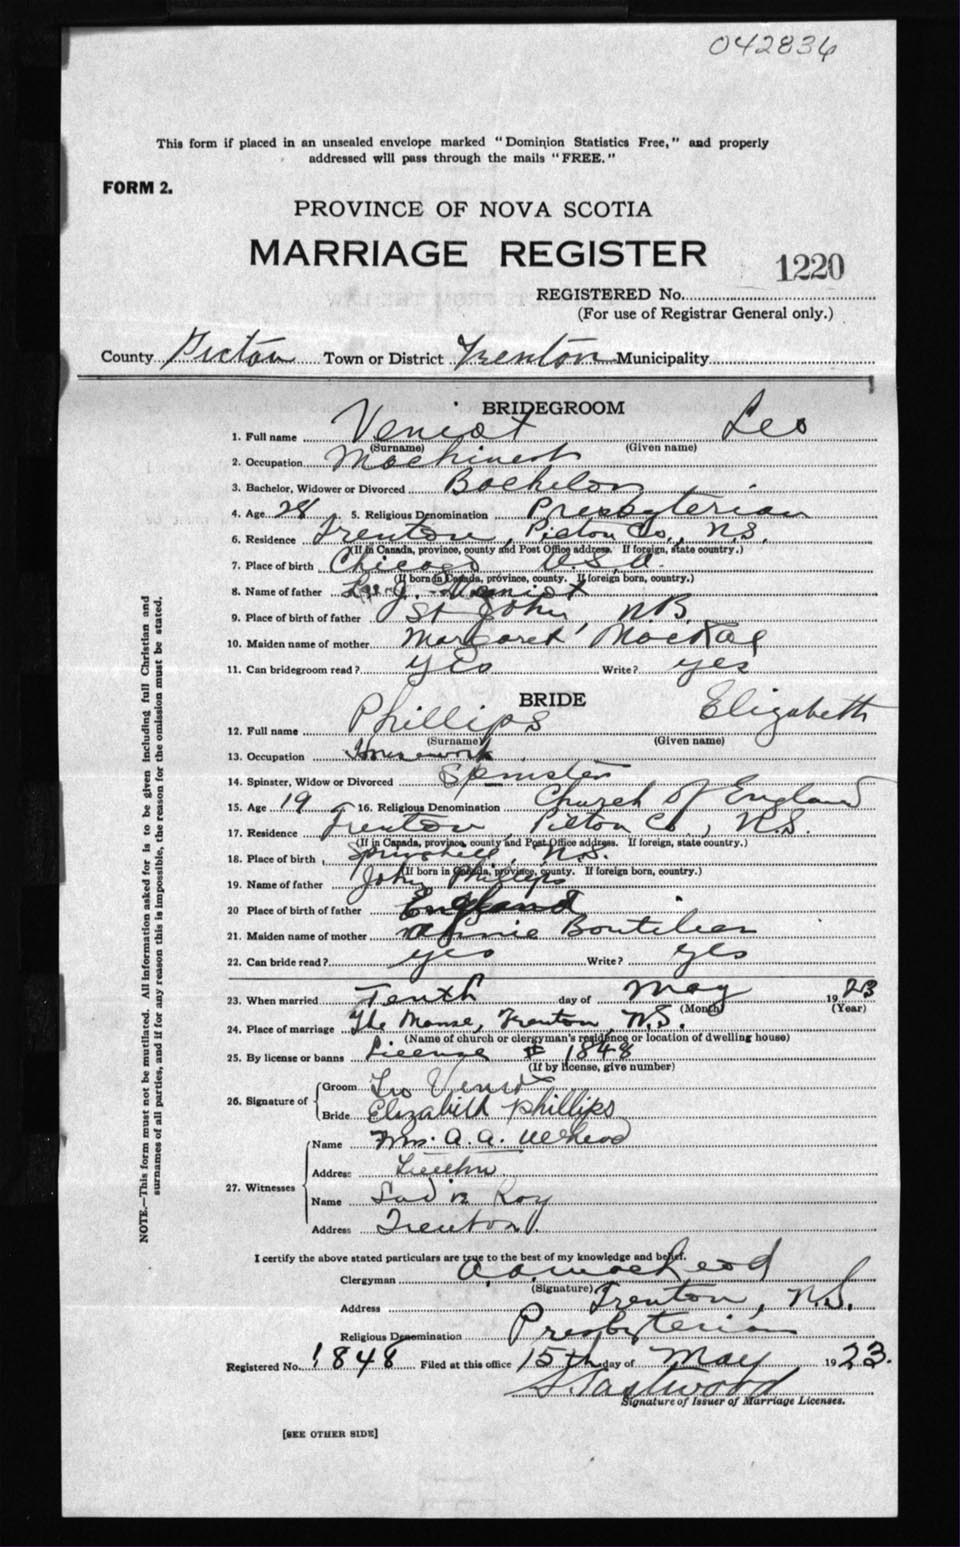 042836
This form if placed in an unsealed envelope marked "Dominion Statistics Free," and properly
addressed will pass through the mails "FREE."
FORM 2.
PROVINCE OF NOVA SCOTIA
MARRIAGE REGISTER
1220
REGISTERED No.
(For use of Registrar General only.)
County Pictou Town or District Trenton Municipality
BRIDEGROOM
1. Full name Veniot Leo
(Surname) (Given name)
2. Occupation Machinest
3. Bachelor, Widower or Divorced Bachelor
4. Age 28 5. Religious Denomination Presbyterian
6. Residence Trenton, Pictou Co., N.S.
(If in Canada, province, county and Post Office address. If foreign, state country.)
7. Place of birth Chicago U.S.A.
(If born in Canada, province, county. If foreign born, country.)
8. Name of father J. Veniot
9. Place of birth of father St John, N.B.
10. Maiden name of mother Margaret MacKay
11. Can bridegroom read? yes Write? yes
BRIDE
12. Full name Phillips Elizabeth
(Surname) (Given name)
13. Occupation Housework
14. Spinster, Widow or Divorced Spinster
15. Age 19 16. Religious Denomination Church of England
17. Residence Trenton, Pictou Co., N.S.
(If in Canada, province, county and Post Office address. If foreign, state country.)
18. Place of birth Springhill, N.S.
(If born in Canada, province, county. If foreign born, country.)
19. Name of father John Phillips
20 Place of birth of father England
21. Maiden name of mother Annie Boutilier
22. Can bride read? yes Write? yes
23. When married Tenth day of May 1923
(Month) (Year)
24. Place of marriage The Manse, Trenton, N.S.
(Name of church or clergyman's residence or location of dwelling house)
25. By license or banns License # 1848
(If by license, give number)
26. Signature of Groom Leo Veniot
Bride Elizabeth Phillips
27. Witnesses Name Mrs. A. A.
Address Trenton
Name Roy
Address Trenton
I certify the above stated particulars are true to the best of my knowledge and belief.
Clergyman A.A. MacLeod
(Signature)
Address Trenton, N.S.
Religious Denomination Presbyterian
Registered No. 1848 Filed at this office 15th day of May 1923.
S. Eastwood
Signature of Issuer of Marriage Licenses.
[SEE OTHER SIDE]
NOTE.—This form must not be mutilated. All information asked for is to be given including full Christian and
surnames of all parties, and if for any reason this is impossible, the reason for the omission must be stated.